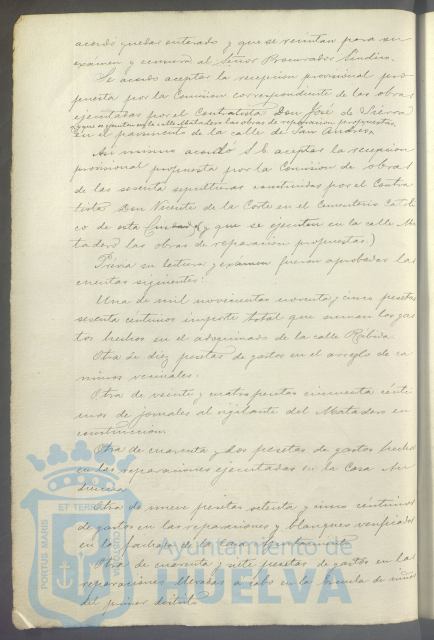 acordó quedar enterado y que se remitan para su
exámen y censura al Señor Procurador Síndico.
Se acordó aceptar la recepción provisional pro-
puesta por la Comision correspondiente de las obras
ejecutadas por el Contratista Don José de Sierra
y que se ejecuten en la calle Matadero las obras de reparacion propuestas
en el pavimento de la calle de San Andres.
Asi mismo acordó S.E. aceptar la recepcion
provisional propuesta por la Comision de obras
de las sesenta sepulturas construidas por el Contra-
tista Don Vicente de la Corte en el Cementerio Catoli-
co de esta Ciudad (y que se ejecuten en la calle Ma-
tadero las obras de reparacion propuestas)
Prévia su lectura y exámen fueron aprobadas las
cuentas siguientes:
Una de mil novecientas noventa y cinco pesetas
sesenta céntimos importe total que suman los gas-
tos hechos en el adoquinado de la calle Rábida.
Otra de diez pesetas de gastos en el arreglo de ca-
minos vecinales.
Otra de veinte y cuatro pesetas cincuenta cénti-
mos de jornales al vigilante del Matadero en
construccion.
Otra de cuarenta y dos pesetas de gastos hechos
en las reparaciones ejecutadas en la Casa Au-
diencia.
Otra de nueve pesetas setenta y cinco céntimos
de gastos en las reparaciones y blanqueo verificados
en la fachada de la Casa Ayuntamiento
Otra de cuarenta y siete pesetas de gastos en las
reparaciones llevadas a cabo en la Escuela de niños
del primer distrito
PORTUS MARIS
ET TERRAE
CUSTODIA
Ayuntamiento de
HUELVA